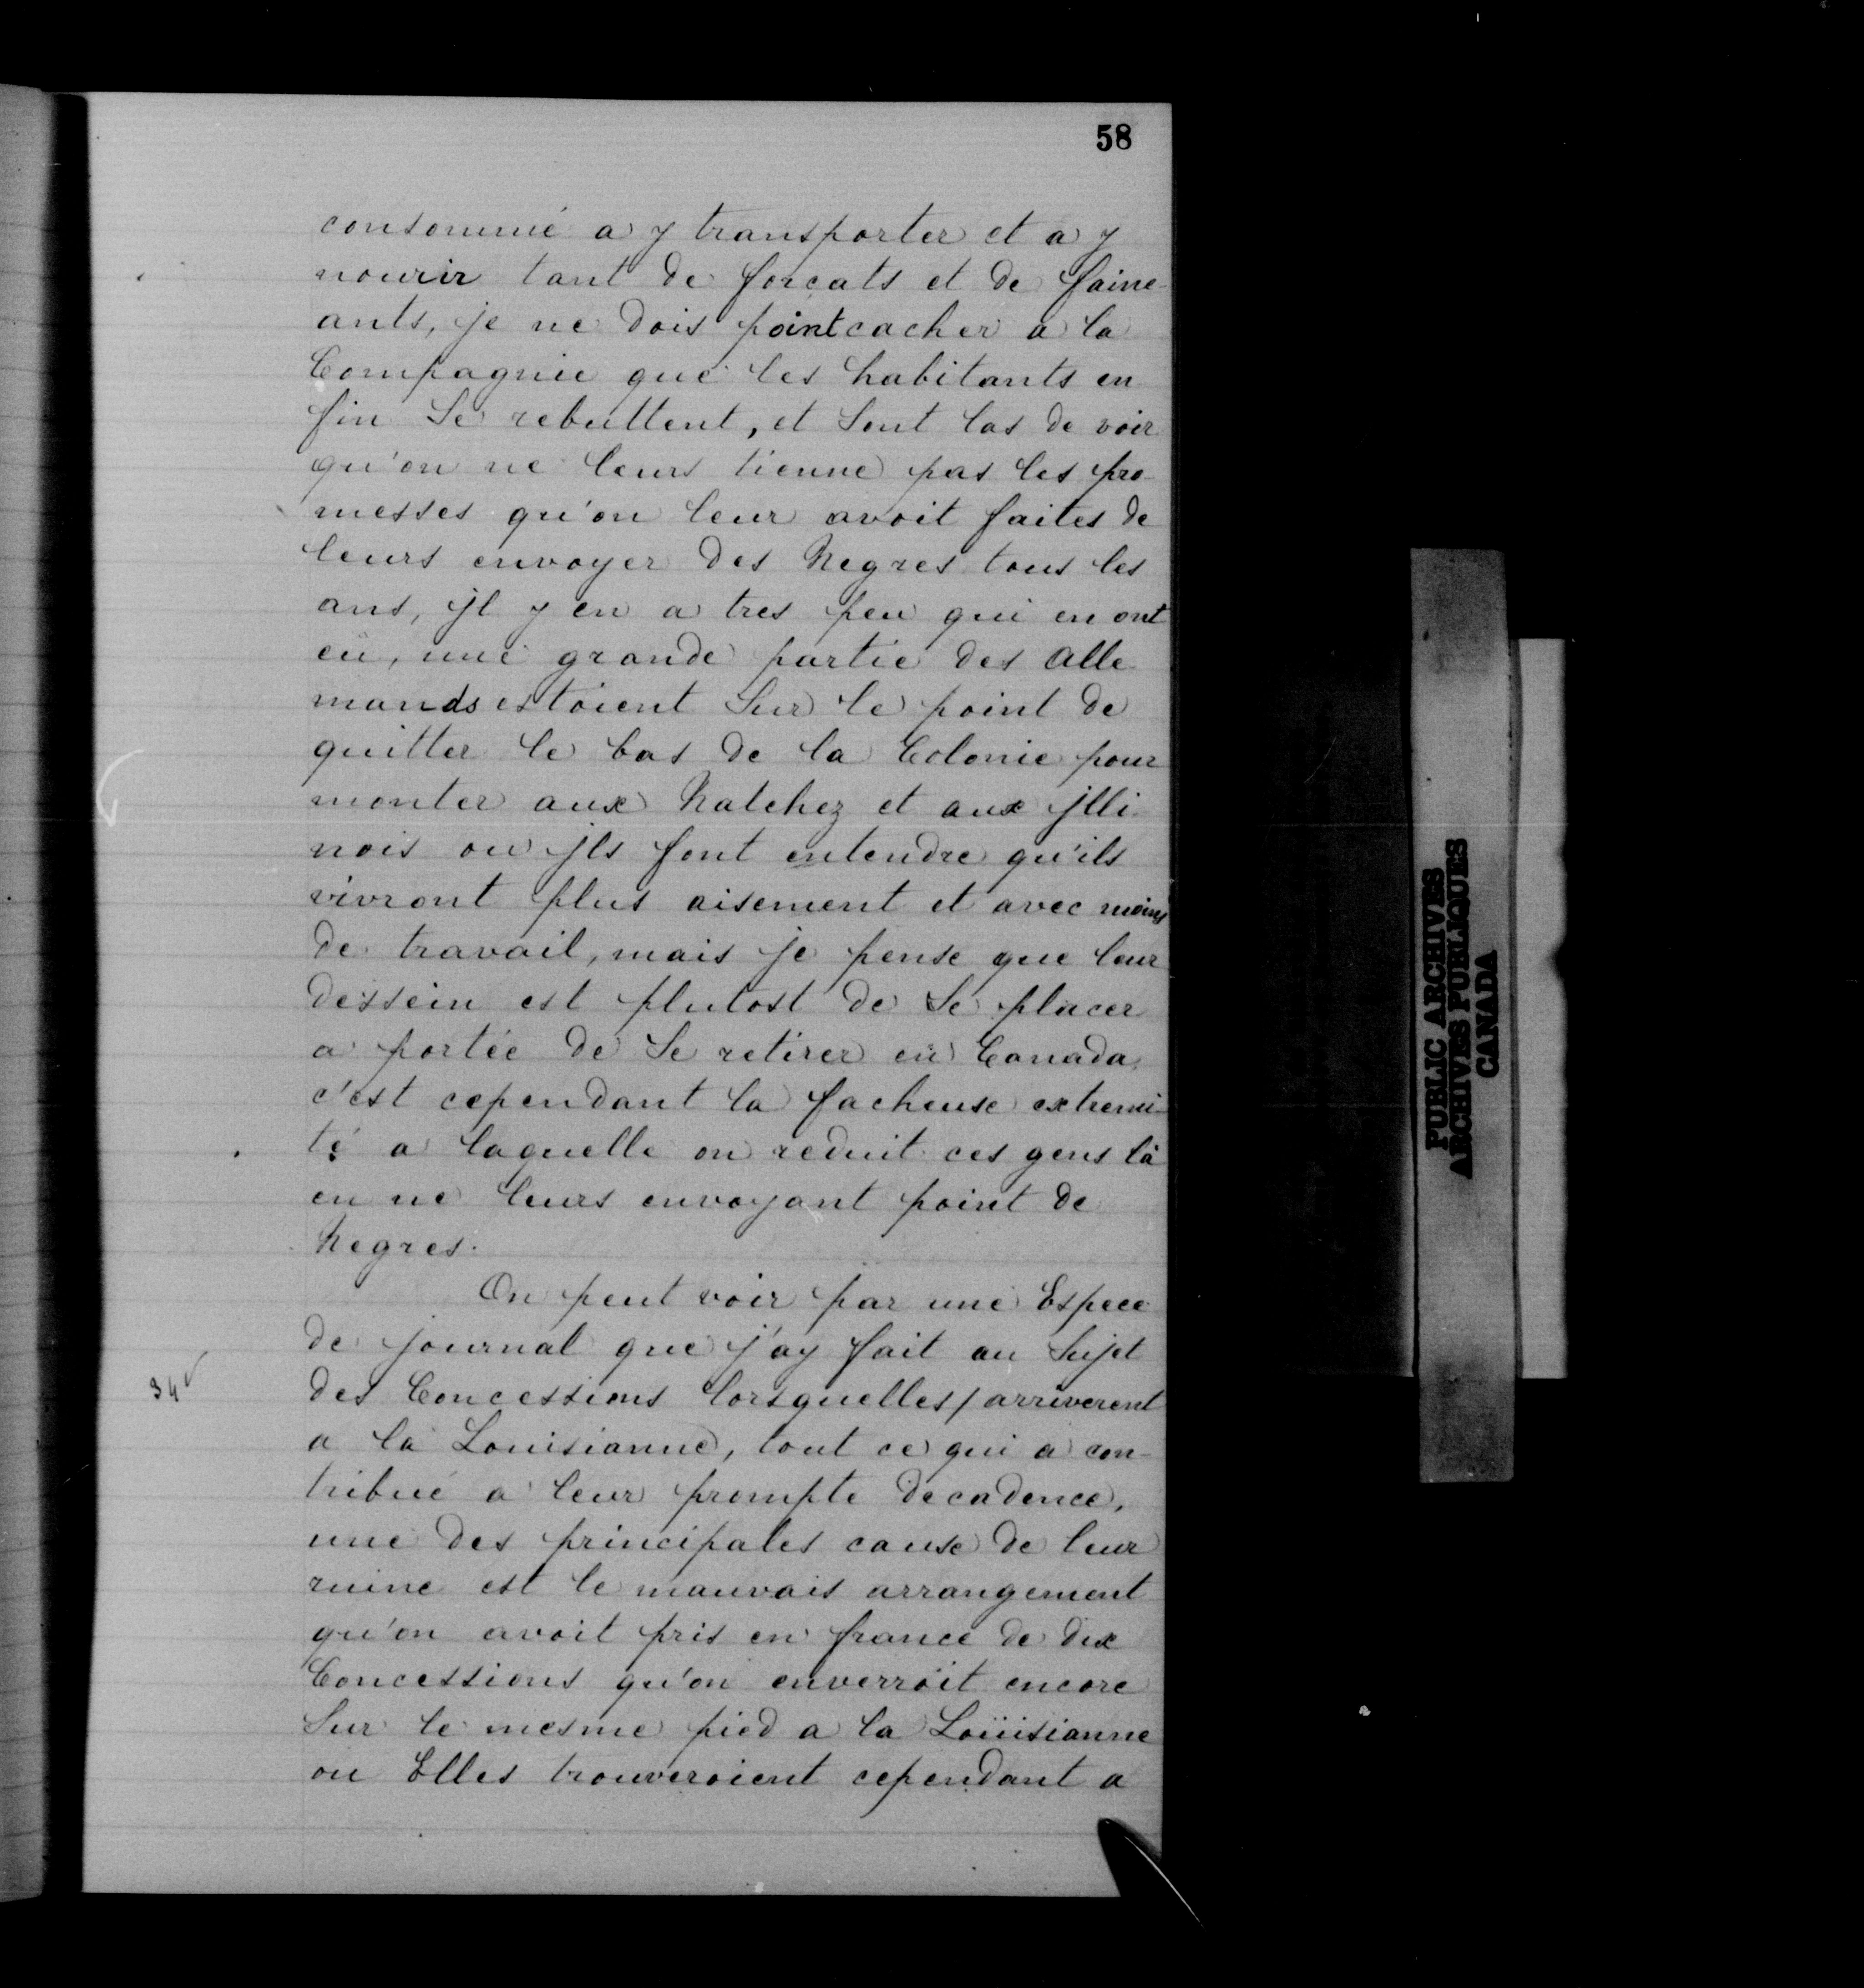 58
consommé a y transporter et a y
nourir tant de forcats et de faine-
ants, je ne dois point cacher a la
Compagnie que les habitants en
fin se rebuttent, et sont las de voir
qu'on ne leurs tienne pas les pro-
messes qu'on leur avoit faites de
leurs envoyer des Negres tous les
ans, jl y en a tres peu qui en ont
eü, une grande partie des alle-
mands estoient sur le point de
quitter le bas de la Colonie pour
monter aux Natchez et aux jlli-
nois ou jls font entendre qu'ils
vivront plus aisement et avec moins
de travail, mais je pense que leur
dessein est plutost de se placer
a portée de se retirer en Canada,
c'est cependant la facheuse extremi-
té a laquelle on reduit ces gens là
en ne leurs envoyant point de
Negres.
On peut voir par une Espece
de journal que j'ay fait au Sujet
34v
des Concessions lorsquelles / arriverent
a la Louisianne, tout ce qui a con-
tribué a leur prompte decadence,
une des principales cause de leur
ruine est le mauvais arrangement
qu'on avoit pris en france de dix
Concessions qu'on enverroit encore
sur le mesme pied a la Loüisianne
ou Elles trouveroient cependant a
PUBLIC ARCHIVES
ARCHIVES PUBLIQUES
CANADA